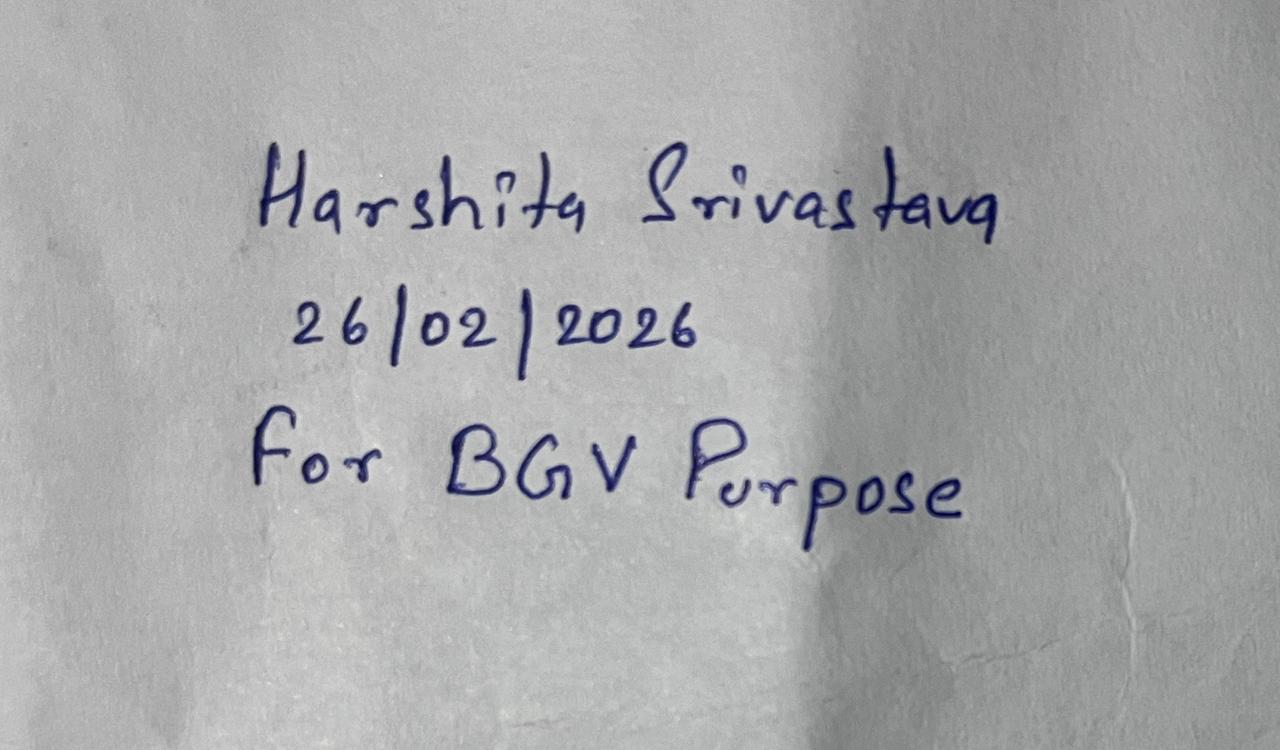 Harshita Srivastava
26/02/2026
For BGV Purpose